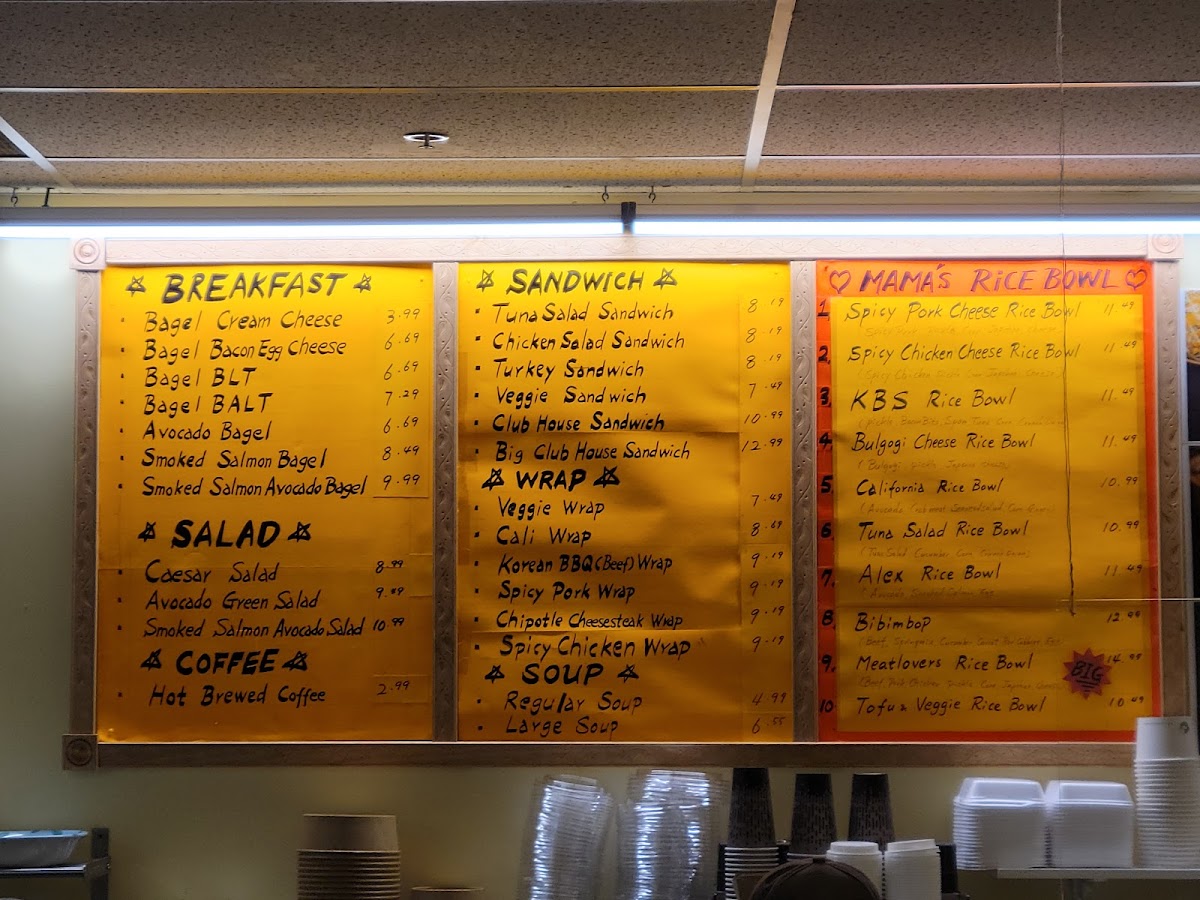 BREAKFAST
Bagel Cream Cheese 3.99
Bagel Bacon Egg Cheese 6.69
Bagel BLT 6.69
Bagel BALT 7.29
Avocado Bagel 6.69
Smoked Salmon Bagel 8.49
Smoked Salmon Avocado Bagel 9.99
SALAD
Caesar Salad 8.99
Avocado Green Salad
Smoked Salmon Avocado Salad 10.99
COFFEE
Hot Brewed Coffee 2.99
SANDWICH
Tuna Salad Sandwich 8.19
Chicken Salad Sandwich 8.19
Turkey Sandwich 8.19
Veggie Sandwich 7.49
Club House Sandwich 10.99
Big Club House Sandwich 12.99
WRAP
Veggie Wrap 7.49
Cali Wrap 8.69
Korean BBQ (Beef) Wrap 9.19
Spicy Pork Wrap 9.19
Chipotle Cheesesteak Wrap 9.19
Spicy Chicken Wrap 9.19
SOUP
Regular Soup 4.99
Large Soup 6.55
MAMA'S RICE BOWL
1. Spicy Pork Cheese Rice Bowl 11.49
2. Spicy Chicken Cheese Rice Bowl 11.49
3. KBS Rice Bowl 11.49
4. Bulgogi Cheese Rice Bowl 11.49
5. California Rice Bowl 10.99
6. Tuna Salad Rice Bowl 10.99
7. Alex Rice Bowl 11.49
8. Bibimbop
9. Meatlovers Rice Bowl 14.95
BIG
10. Tofu & Veggie Rice Bowl 10.49